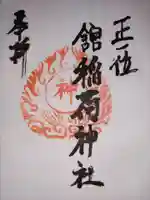 正一位
舘稲荷神社
奉拝